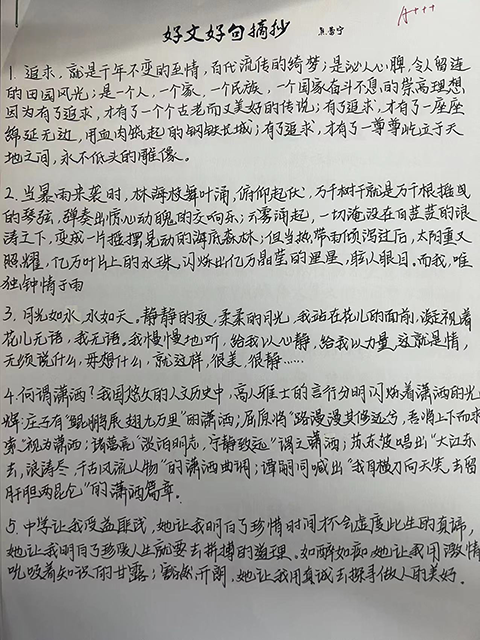 好文好句摘抄
A++++
1. 追求，就是千年不变的至情，百代流传的绮梦；是沁人心脾，令人留连
的田园风光；是一个人，一个家，一个民族，一个国家奋斗不息的崇高理想
因为有了追求，才有了一个个古老而又美好的传说；有了追求，才有了一座座
绵延无边，用血肉筑起的钢铁长城；有了追求，才有了一尊尊屹立于天
地之间，永不低头的雕像。
2. 当暴雨来袭时，林海枝舞叶涌，俯仰起伏，万千树干就是万千根摇曳
的琴弦，弹奏出惊心动魄的交响乐；不雾涌起，一切淹没在白茫茫的浪
涛之下，变成一片摇摆晃动的海底森林；但当热带雨倾泻过后，太阳重又
照耀，亿万叶片上的水珠，闪烁出亿万晶莹的星星，眩人眼目。而我，唯
独钟情于雨
3. 月光如水，水如天。静静的夜，柔柔的月光，我站在花儿的面前，凝视着
花儿无语，我无语。我慢慢地听，给我以心静，给我以力量，这就是情，
无须说什么，毋想什么，就这样，很美，很静……
4. 何谓潇洒？我国悠久的人文历史中，高人雅士的言行分明闪烁着潇洒的光
辉：庄子有“鲲鹏展翅九万里”的潇洒；屈原将“路漫漫其修远兮，吾将上下而求
索”视为潇洒；诸葛亮“淡泊明志，宁静致远”谓之潇洒；苏东坡唱出“大江东
去，浪涛尽，千古风流人物”的潇洒曲调；谭嗣同喊出“我自横刀向天笑，去留
肝胆两昆仑”的潇洒篇章。
5. 中学让我受益匪浅，她让我明白了珍惜时间才不会虚度此生的真谛，
她让我明白了珍惜人生就要去拼搏的道理。如醉如痴，她让我用激情
吮吸着知识的甘露；豁然开朗，她让我用真诚去探寻做人的美好。